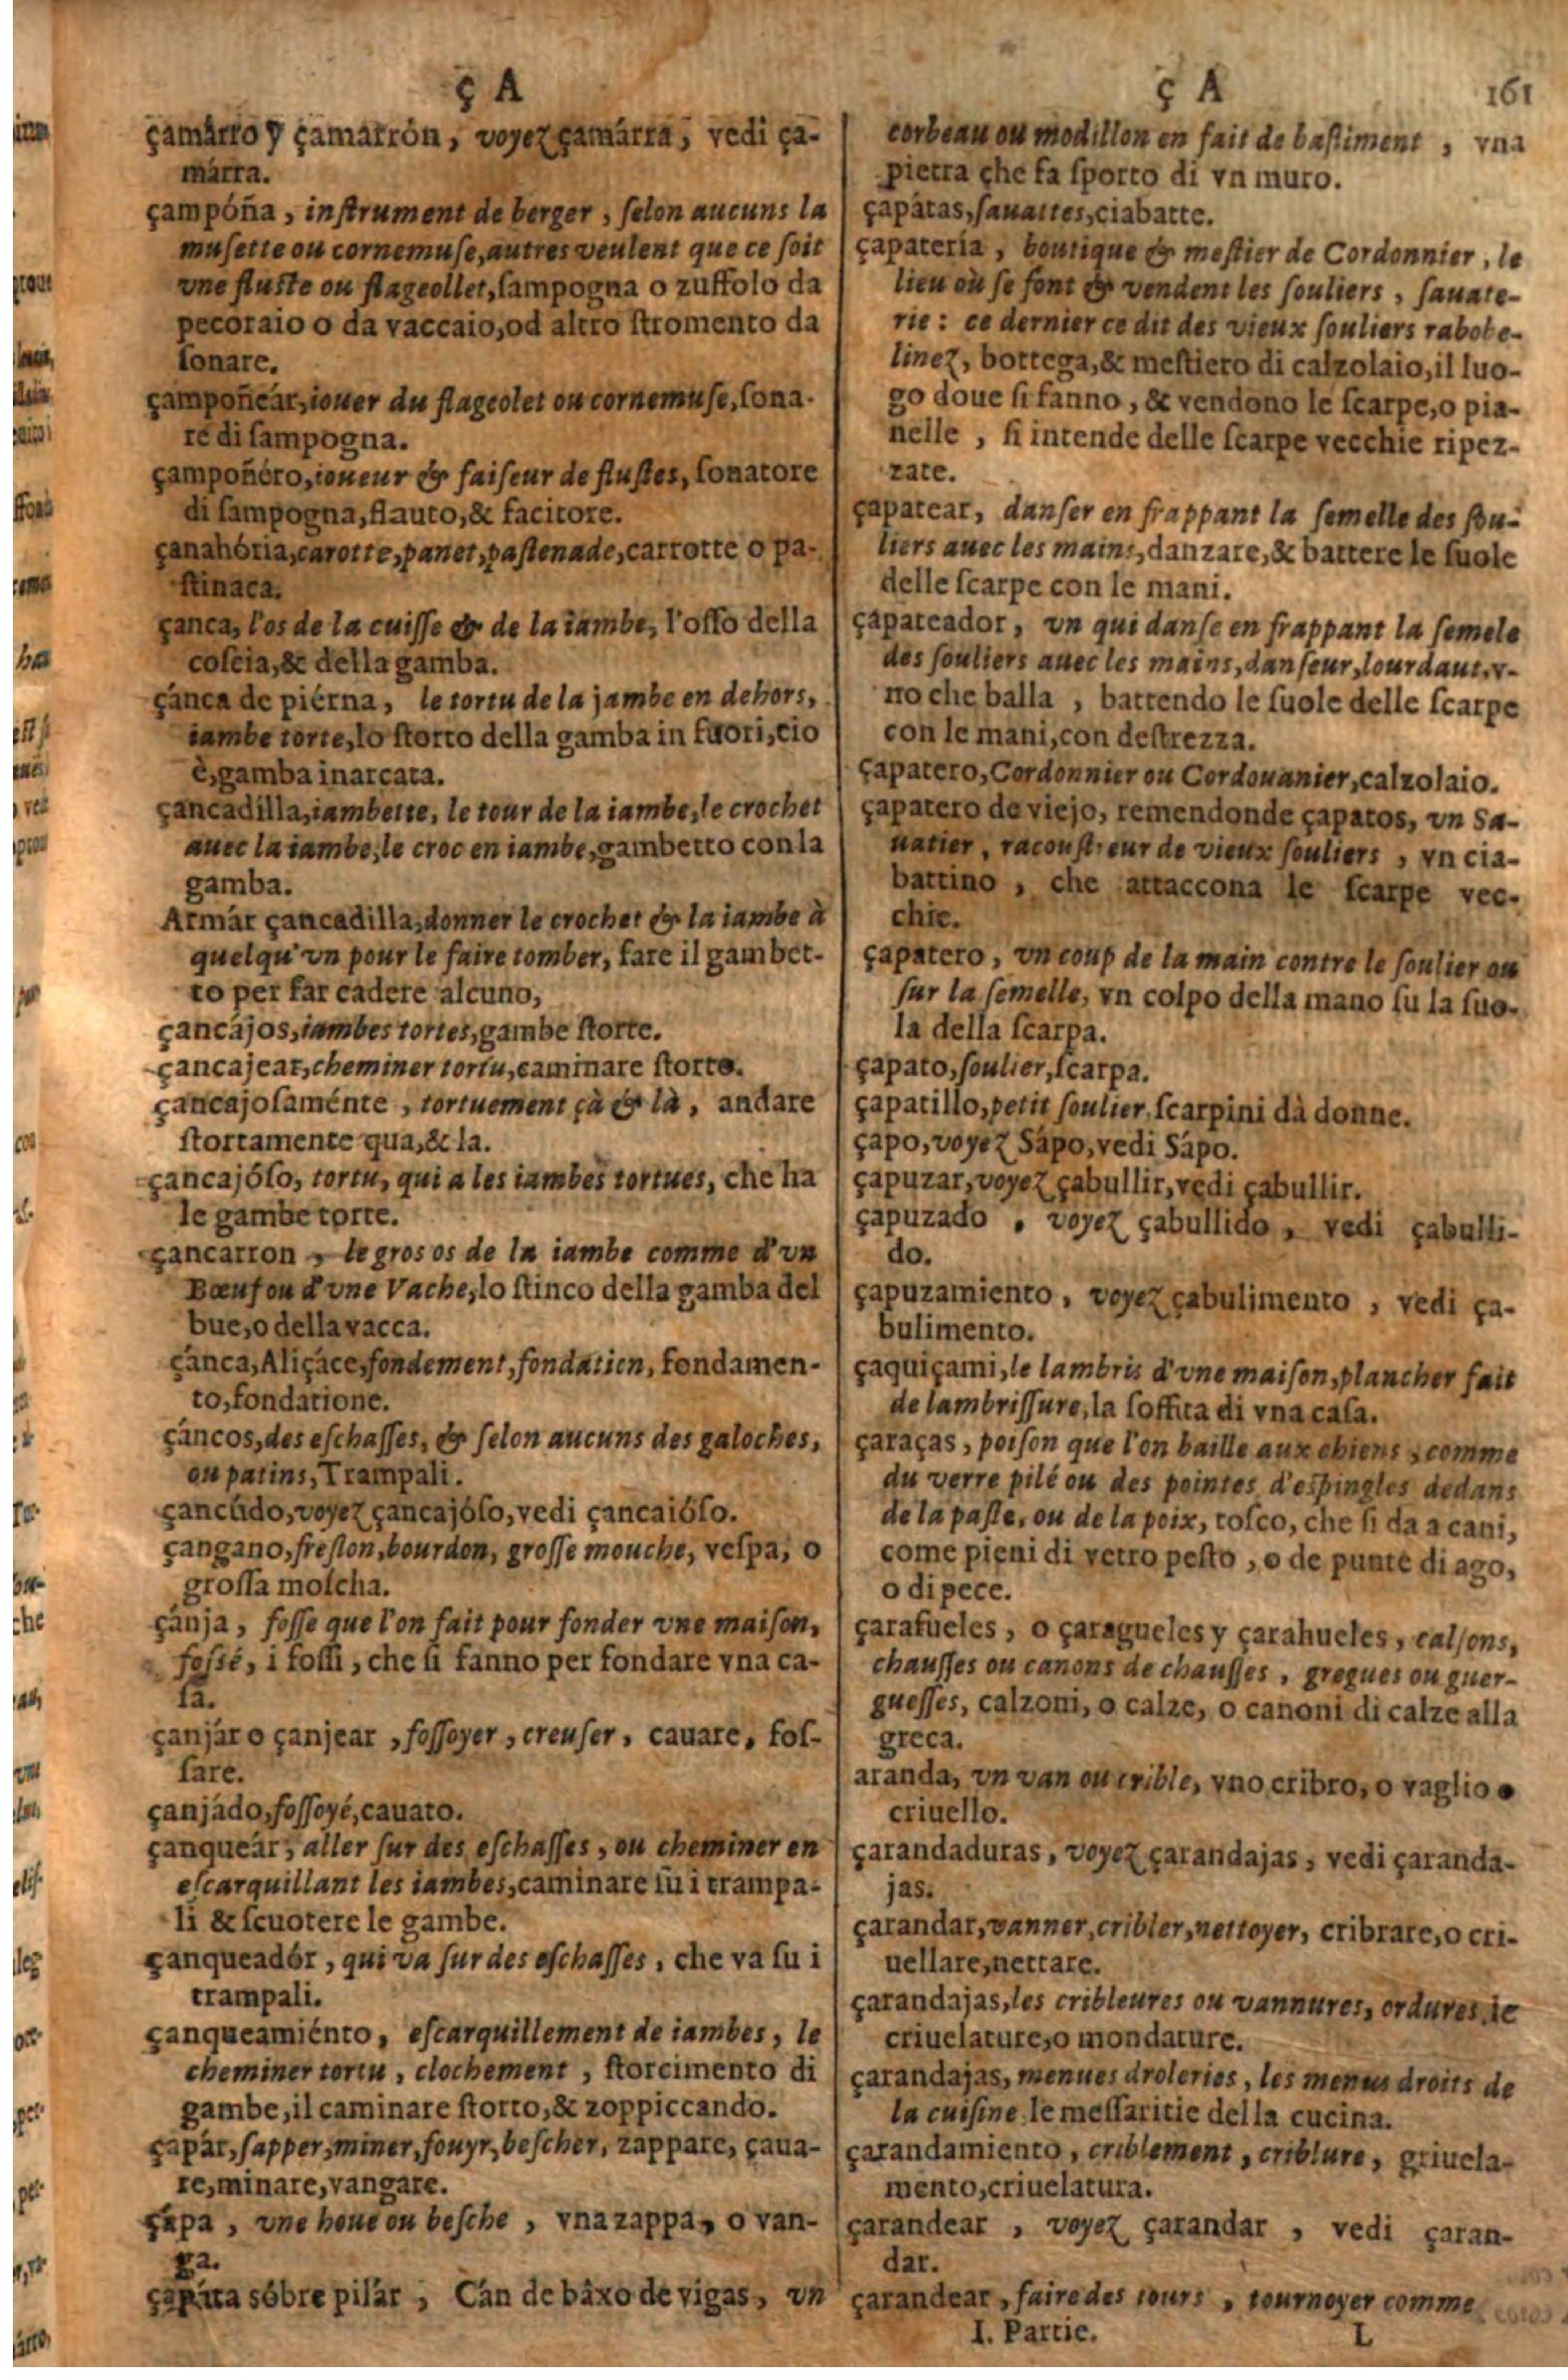 ç A
çamárro y çamarrón, voyez çamárra, vedi ça-
márra.
çampóña, inſtrument de berger, ſelon aucuns la
muſette ou cornemuſe, autres veulent que ce ſoit
vne fluſte ou flageollet, ſampogna o zuffolo da
pecoraio o da vaccaio, od altro ſtromento da
ſonare.
çampoñeár, iouer du flageolet ou cornemuſe, ſona-
re di ſampogna.
çampoñéro, ioueur & faiſeur de fluſtes, ſonatore
di ſampogna, flauto, & facitore.
çanahória, carotte, panet, paſtenade, carrotte o pa-
ſtinaca.
çanca, l'os de la cuiſſe & de la iambe, l'oſſo della
coſcia, & della gamba.
çánca de piérna, le tortu de la jambe en dehors,
iambe torte, lo ſtorto della gamba in fuori, cio
è, gamba inarcata.
çancadílla, iambette, le tour de la iambe, le crochet
auec la iambe, le croc en iambe, gambetto con la
gamba.
Armár çancadilla, donner le crochet & la iambe à
quelqu'vn pour le faire tomber, fare il gambet-
to per far cadere alcuno,
çancájos, iambes tortes, gambe ſtorte.
çancajear, cheminer tortu, caminare ſtorto.
çancajoſaménte, tortuement çà & là, andare
ſtortamente qua, & la.
çancajóſo, tortu, qui a les iambes tortues, che ha
le gambe torte.
çancarron, le gros os de la iambe comme d'vn
Bœuf ou d'vne Vache, lo ſtinco della gamba del
bue, o della vacca.
çánca, Aliçáce, fondement, fondation, fondamen-
to, fondatione.
çáncos, des eſchaſſes, & ſelon aucuns des galoches,
ou patins, Trampali.
çancúdo, voyez çancajóſo, vedi çancaióſo.
çangano, freſlon, bourdon, groſſe mouche, veſpa, o
groſſa moſcha.
çánja, foſſe que l'on fait pour fonder vne maiſon,
foſſé, i foſſi, che ſi fanno per fondare vna ca-
ſa.
çanjár o çanjear, foſſoyer, creuſer, cauare, foſ-
ſare.
çanjádo, foſſoyé, cauato.
çanqueár, aller ſur des eſchaſſes, ou cheminer en
eſcarquillant les iambes, caminare ſù i trampa-
li & ſcuotere le gambe.
çanqueadór, qui va ſur des eſchaſſes, che va ſu i
trampali.
çanqueamiénto, eſcarquillement de iambes, le
cheminer tortu, clochement, ſtorcimento di
gambe, il caminare ſtorto, & zoppiccando.
çapár, ſapper, miner, fouyr, beſcher, zappare, çaua-
re, minare, vangare.
çápa, vne houe ou beſche, vna zappa, o van-
ga.
çapáta sóbre pilár, Cán de báxo de vigas, vn
ç A 161
corbeau ou modillon en fait de baſtiment, vna
pietra che fa ſporto di vn muro.
çapátas, ſauattes, ciabatte.
çapatería, boutique & meſtier de Cordonnier, le
lieu où ſe font & vendent les ſouliers, ſauate-
rie: ce dernier ce dit des vieux ſouliers rabobe-
linez, bottega, & meſtiero di calzolaio, il luo-
go doue ſi fanno, & vendono le ſcarpe, o pia-
nelle, ſi intende delle ſcarpe vecchie ripez-
zate.
çapatear, danſer en frappant la ſemelle des ſou-
liers auec les mains, danzare, & battere le ſuole
delle ſcarpe con le mani.
çapateador, vn qui danſe en frappant la ſemele
des ſouliers auec les mains, danſeur, lourdaut, v-
no che balla, battendo le ſuole delle ſcarpe
con le mani, con deſtrezza.
çapatero, Cordonnier ou Cordouanier, calzolaio.
çapatero de viejo, remendonde çapatos, vn Sa-
uatier, racouſtreur de vieux ſouliers, vn cia-
battino, che attaccona le ſcarpe vec-
chie.
çapatero, vn coup de la main contre le ſoulier ou
ſur la ſemelle, vn colpo della mano ſu la ſuo-
la della ſcarpa.
çapato, ſoulier, ſcarpa.
çapatillo, petit ſoulier, ſcarpini dà donne.
çapo, voyez Sápo, vedi Sápo.
çapuzar, voyez çabullir, vedi çabullir.
çapuzado, voyez çabullido, vedi çabulli-
do.
çapuzamiento, voyez çabulimento, vedi ça-
bulimento.
çaquiçami, le lambris d'vne maiſon, plancher fait
de lambriſſure, la ſoffita di vna caſa.
çaraças, poiſon que l'on baille aux chiens, comme
du verre pilé ou des pointes d'eſpingles dedans
de la paſte, ou de la poix, toſco, che ſi da a cani,
come pieni di vetro peſto, o de punte di ago,
o di pece.
çarafueles, o çaragueles y çarahueles, calſons,
chauſſes ou canons de chauſſes, gregues ou guer-
gueſſes, calzoni, o calze, o canoni di calze alla
greca.
aranda, vn van ou crible, vno cribro, o vaglio o
criuello.
çarandaduras, voyez çarandajas, vedi çaranda-
jas.
çarandar, vanner, cribler, nettoyer, cribrare, o cri-
uellare, nettare.
çarandajas, les cribleures ou vannures, ordures, le
criuelature, o mondature.
çarandajas, menues droleries, les menus droits de
la cuiſine, le meſſaritie della cucina.
çarandamiento, criblement, criblure, griuela-
mento, criuelatura.
çarandear, voyez çarandar, vedi çaran-
dar.
çarandear, faire des tours, tournoyer comme
I. Partie. L